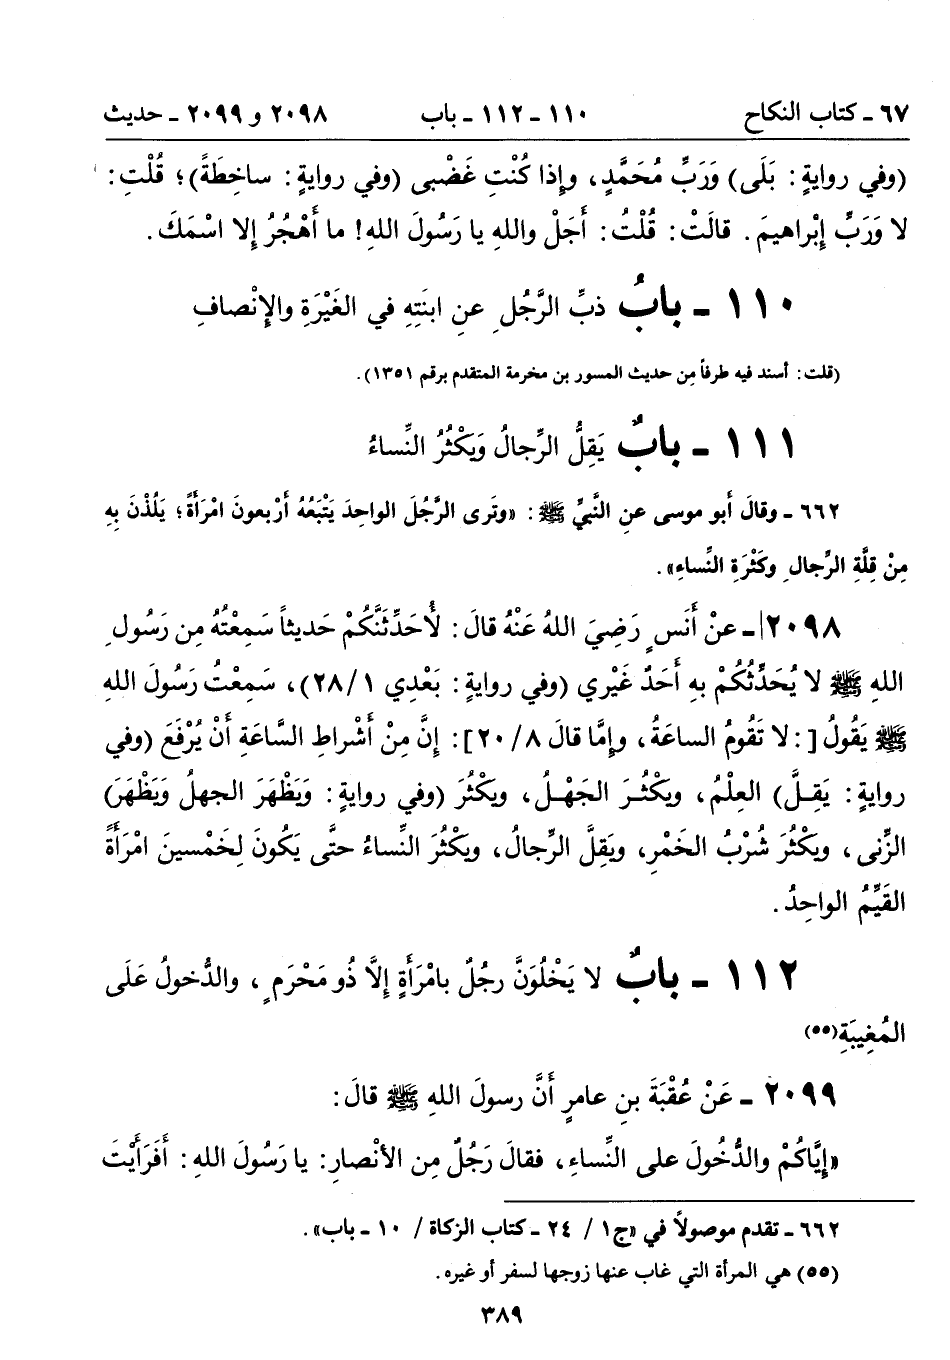 ٦٧ ـ كتاب النكاح ١١٠ ـ ١١٢ ـ باب ٢٠٩٨ و ٢٠٩٩ ـ حديث
(وفي روايةٍ: بَلَى) وَرَبِّ مُحَمَّدٍ، وإذا كُنْتِ غَضْبى (وفي روايةٍ: ساخِطَةً)؛ قُلْتِ:
لا وَرَبِّ إبْراهيمَ. قالَتْ: قُلْتُ: أَجَلْ واللهِ يا رَسُولَ اللهِ! ما أَهْجُرُ إلا اسْمَكَ.
١١٠ ـ بابُ ذبِّ الرَّجُلِ عنِ ابنَتِهِ في الغَيْرَةِ والإنْصافِ
(قلت: أسند فيه طرفاً مِن حديث المسور بن مخرمة المتقدم برقم ١٣٥١).
١١١ ـ بابٌ يَقِلُّ الرِّجالُ وَيَكْثُرُ النِّساءُ
٦٦٢ ـ وقالَ أبو موسى عنِ النَّبيِّ ﷺ: «وتَرى الرَّجُلَ الواحِدَ يَتْبَعُهُ أرْبعونَ امْرَأةً؛ يَلُذْنَ بِهِ
مِنْ قِلَّةِ الرِّجالِ وكَثْرَةِ النِّساءِ».
٢٠٩٨ ـ عنْ أنَسٍ رَضِيَ اللهُ عَنْهُ قالَ: لأُحَدِّثَنَّكُمْ حَديثاً سَمِعْتُهُ مِن رَسُولِ
اللهِ ﷺ لا يُحَدِّثُكُمْ بِهِ أحَدٌ غَيْري (وفي روايةٍ: بَعْدِي ١/ ٢٨)، سَمِعْتُ رَسُولَ اللهِ
ﷺ يَقُولُ [: لا تَقُومُ الساعَةُ، وإمَّا قالَ ٨/ ٢٠]: إنَّ مِنْ أَشْراطِ السَّاعَةِ أنْ يُرْفَعَ (وفي
روايةٍ: يَقِـلَّ) العِلْمُ، ويَكْثُـرَ الجَهْـلُ، ويَكْثُرَ (وفي روايةٍ: وَيَظْهَرَ الجهلُ وَيَظْهَرَ)
الزِّنى، ويَكْثُرَ شُرْبُ الخَمْرِ، ويَقِلَّ الرِّجالُ، ويَكْثُرَ النِّساءُ حتَّى يَكُونَ لِخَمْسينَ امْرَأةً
القَيِّمُ الواحِدُ.
١١٢ ـ بابٌ لا يَخْلُوَنَّ رجُلٌ بامْرَأةٍ إلَّا ذُو مَحْرَمٍ، والدُّخولُ عَلَى
المُغِيبَةِ(٥٥)
٢٠٩٩ ـ عَنْ عُقْبَةَ بنِ عامرٍ أنَّ رسولَ اللهِ ﷺ قالَ:
«إيَّاكُمْ والدُّخُولَ على النِّساءِ، فقالَ رَجُلٌ مِن الأنْصارِ: يا رَسُولَ اللهِ: أَفَرَأَيْتَ
٦٦٢ ـ تقدم موصولاً في «ج١ / ٢٤ ـ كتاب الزكاة / ١٠ ـ باب».
(٥٥) هي المرأة التي غاب عنها زوجها لسفر أو غيره.
٣٨٩